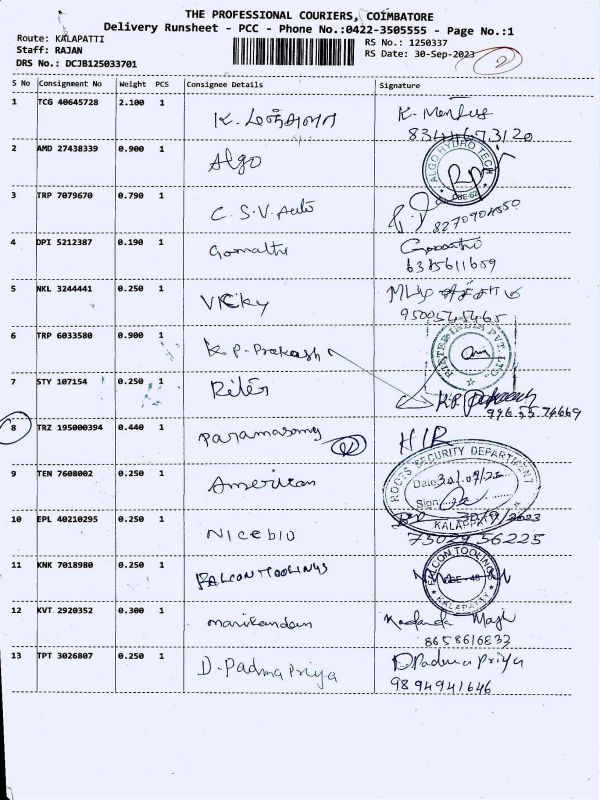 THE PROFESSIONAL COURIERS, COIMBATORE
Delivery Runsheet - PCC - Phone No.:0422-3505555 - Page No.:1
Route: KALAPATTI
RS No.: 1250337
Staff: RAJAN
RS Date: 30-Sep-2023
2
DRS No.: DCJB125033701
S No Consignment No Weight PCS Consignee Details Signature
1 TCG 40645728 2.100 1 K.
2 AMD 27438339 0.900 1 Algo
ALGO HYDRO TECH
CBE-62
3 TRP 7079670 0.790 1 C.S.V. Auto
8270904550
4 DPI 5212387 0.190 1 Gomathi Gomathi
6385611659
5 NKL 3244441 0.250 1 Vicky
6 TRP 6033580 0.900 1 K.P. Prakash
RIETER INDIA PVT. LTD.
7 STY 107154 0.250 1 Riter
8 TRZ 195000394 0.440 1 Paramasamy H/R
ROOTS SECURITY DEPARTMENT
Date
Sign
KALAPATTY
9 TEN 7608002 0.250 1 American
10 EPL 40210295 0.250 1 Nicebio 30/9/2023
75029 56225
11 KNK 7018980 0.250 1 FALCON TOOLINGS
FALCON TOOLINGS
CBE-48
KALAPATTY
12 KVT 2920352 0.300 1 manikandan
8658616833
13 TPT 3026807 0.250 1 D. Padma Priya D Padma Priya
9894941646